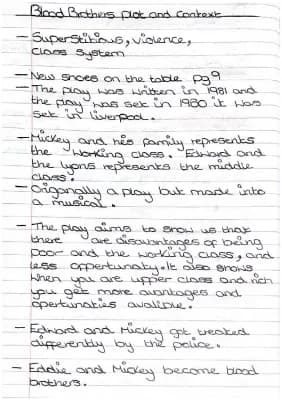 Blood Brothers plot and context
- Superstitious, violence,
class system
- New shoes on the table pg9
- The play was written in 1981 and
the play was set in 1980 it was
set in liverpool.
- Mickey and his family represents
the working class. Edward and
the lyons represents the middle
class.
- Origonally a play but made into
a musical.
- The play aims to snow us that
there are disavantages of being
poor and the working class, and
less oppertunaty. It also shows
when you are upper class and rich
you get more avantages and
opertunaties avalible.
- Edward and Mickey got treated
differently by the police.
- Eddie and Mickey become blood
brothers.